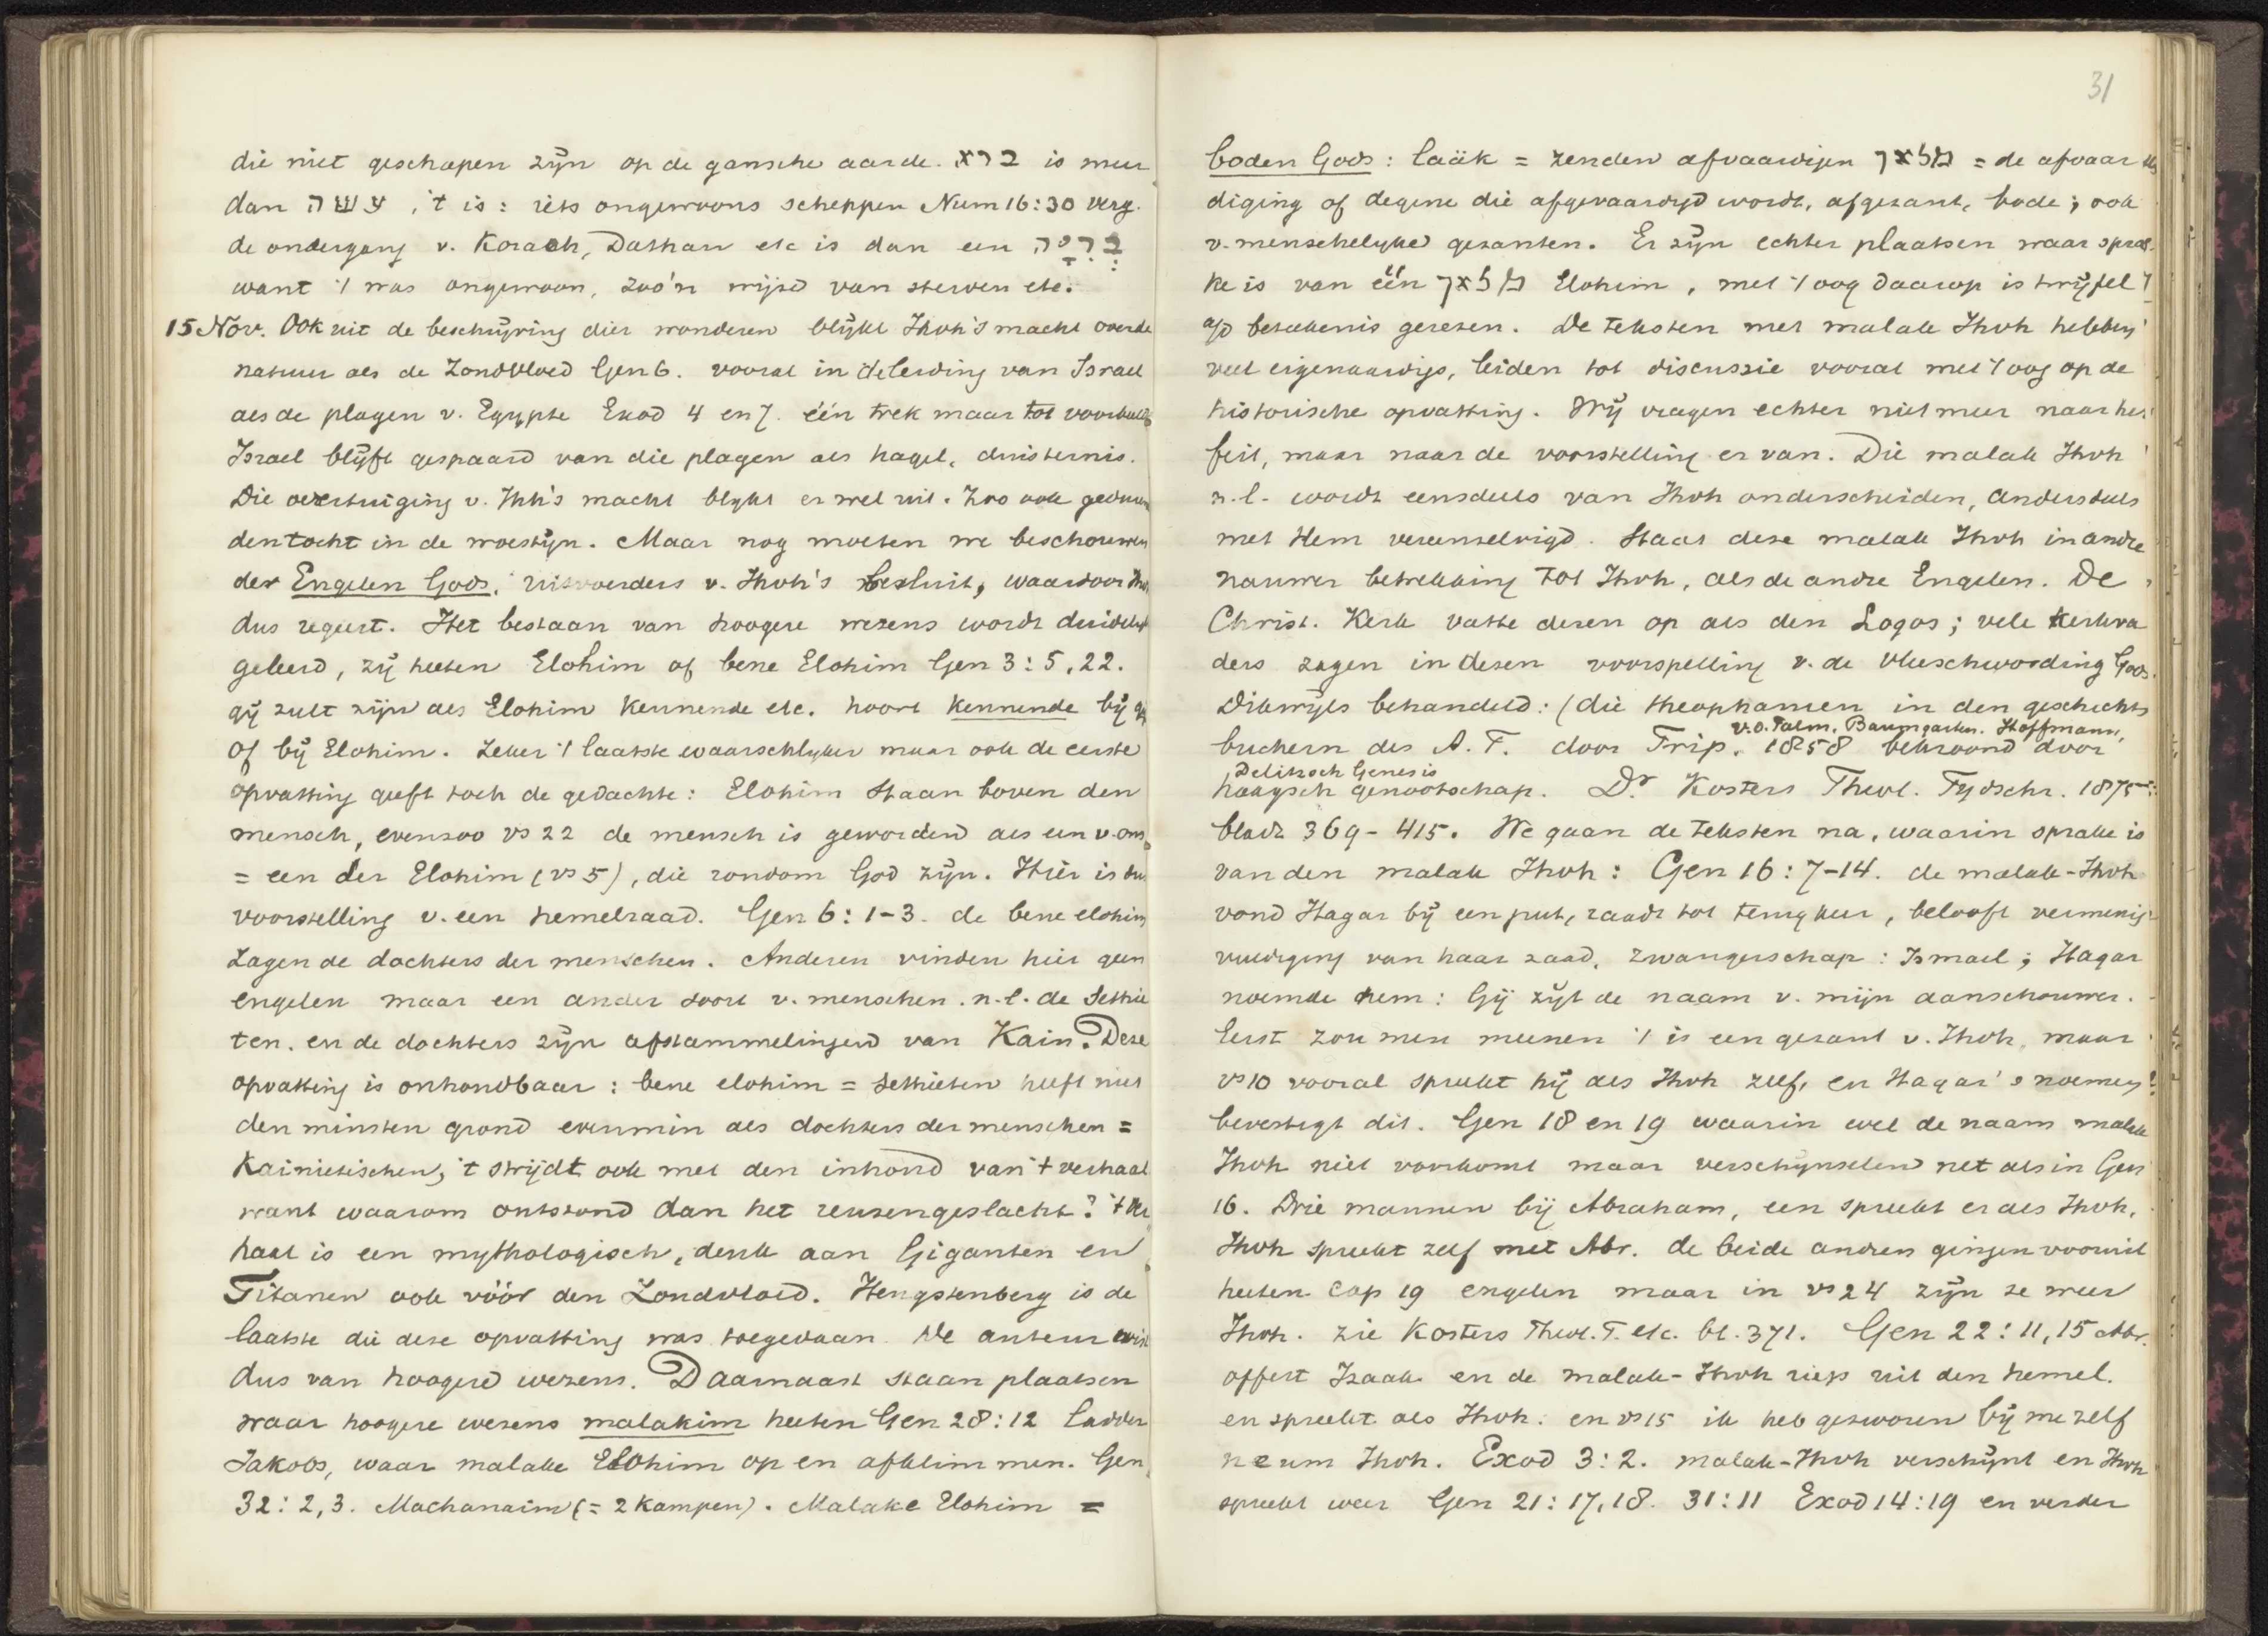 die niet geschapen zijn op de gansche aarde. ברא is meer
dan עשה, 't is: iets ongewoons scheppen Num 16:30 verg.
de ondergang v. Korach, Dathan etc is dan een בריה
want 't was ongewoon, zóó'n wijze van sterven etc.
15 Nov. Ook uit de beschrijving dier wonderen blijkt Jhvh's macht over de
natuur als de Zondvloed Gen 6. vooral in de leiding van Israel
als de plagen v. Egypte Exod 4 en 7. één trek maar tot voorbeeld
Israel blijft gespaard van die plagen als hagel, duisternis.
Die overtuiging v. Jhh's macht blykt er wel uit. Zoo ook gedurende
den tocht in de woestijn. Maar nog moeten we beschouwen
der Engelen Gods, uitvoerders v. Jhvh's besluit, waardoor Jhvh
dus regeert. Het bestaan van hoogere wezens wordt duidelyk
geleerd, zij heeten Elohim of bene Elohim Gen 3:5,22.
gij zult zijn als Elohim kennende etc. hoort kennende bij gij
of bij Elohim. Zeker 't laatste waarschlyker maar ook de eerste
opvatting geeft toch de gedachte: Elohim staan boven den
mensch, evenzoo vs 22 de mensch is geworden als een v. ons
= een der Elohim (vs 5), die rondom God zijn. Hier is de
voorstelling v. een hemelraad. Gen 6:1-3. de bene elohim
zagen de dochters der menschen. Anderen vinden hier geen
engelen maar een ander soort v. menschen. n.l. de Sethie
ten. en de dochters zijn afstammelingen van Kain. Deze
opvatting is onhoudbaar: bene elohim = Sethieten heeft niet
den minsten grond evenmin als dochters der menschen =
Kainietischen, 't strijdt ook met den inhoud van 't verhaal
want waarom ontstond dan het reuzengeslacht? 't ver
haal is een mythologisch, denk aan Giganten en
Titanen ook vóór den Zondvloed. Hengstenberg is de
laatste die deze opvatting was toegedaan. De auteur wist
dus van hoogere wezens. Daarnaast staan plaatsen
waar hoogere wezens malakim heeten Gen 28:12 ladder
Jakobs, waar malake Elohim op en afklimmen. Gen
32:2,3. Machanaim (= 2 kampen). Malake Elohim =
31
boden Gods: laäk = zenden afvaardigen מלאך = de afvaar
diging of degene die afgevaardigd wordt, afgezant, bode; ook
v. menschelyke gezanten. Er zijn echter plaatsen waar spra
ke is van één מלאך Elohim, met 't oog daarop is twijfel
o/d beteekenis gerezen. De teksten met malak Jhvh hebben
veel eigenaardigs, leiden tot discussie vooral met 't oog op de
historische opvatting. Wij vragen echter niet meer naar het
feit, maar naar de voorstelling er van. Die malak Jhvh
n.l. wordt eensdeels van Jhvh onderscheiden, andersdeels
met Hem vereenzelvigd. Staat deze malak Jhvh in andre
nauwer betrekking tot Jhvh, als de andre Engelen. De
Christ. Kerk vatte dezen op als den Logos; vele kerkva
ders zagen in dezen voorspelling v. de vleeschwording Gods.
Dikwijls behandeld: (die theophanien in den geschichts
v.d. Palm, Baumgarten. Hoffmann,
buchern des A.T. door Trip. 1858 bekroond door
Delitzsch Genesis
haagsch genootschap. Dr Kosters Theol. Tijdschr. 1875
bladz 369-415. We gaan de teksten na, waarin sprake is
van den malak Jhvh: Gen 16:7-14. de malak-Jhvh
vond Hagar bij een put, raadt tot terugkeer, belooft vermenig
vuldiging van haar zaad, zwangerschap: Ismael; Hagar
noemde hem: Gij zijt de naam v. mijn aanschouwer.
Eerst zou men meenen 't is een gezant v. Jhvh, maar
vs 10 vooral spreekt hij als Jhvh zelf, en Hagar's noemen
bevestigt dit. Gen 18 en 19 waarin wel de naam malak
Jhvh niet voorkomt maar verschijnselen net als in Gen
16. Drie mannen bij Abraham, een spreekt er als Jhvh,
Jhvh spreekt zelf met Abr. de beide andren gingen vooruit
heeten cap 19 engelen maar in vs 24 zijn ze weer
Jhvh. zie Kosters Theol. T. etc. bl. 371. Gen 22:11,15 Abr.
offert Izaak en de malak-Jhvh riep uit den hemel.
en spreekt als Jhvh. en vs 15 ik heb gezworen bij me zelf
neum Jhvh. Exod 3:2. malak-Jhvh verschijnt en Jhvh
spreekt weer Gen 21:17,18. 31:11 Exod 14:19 en verder